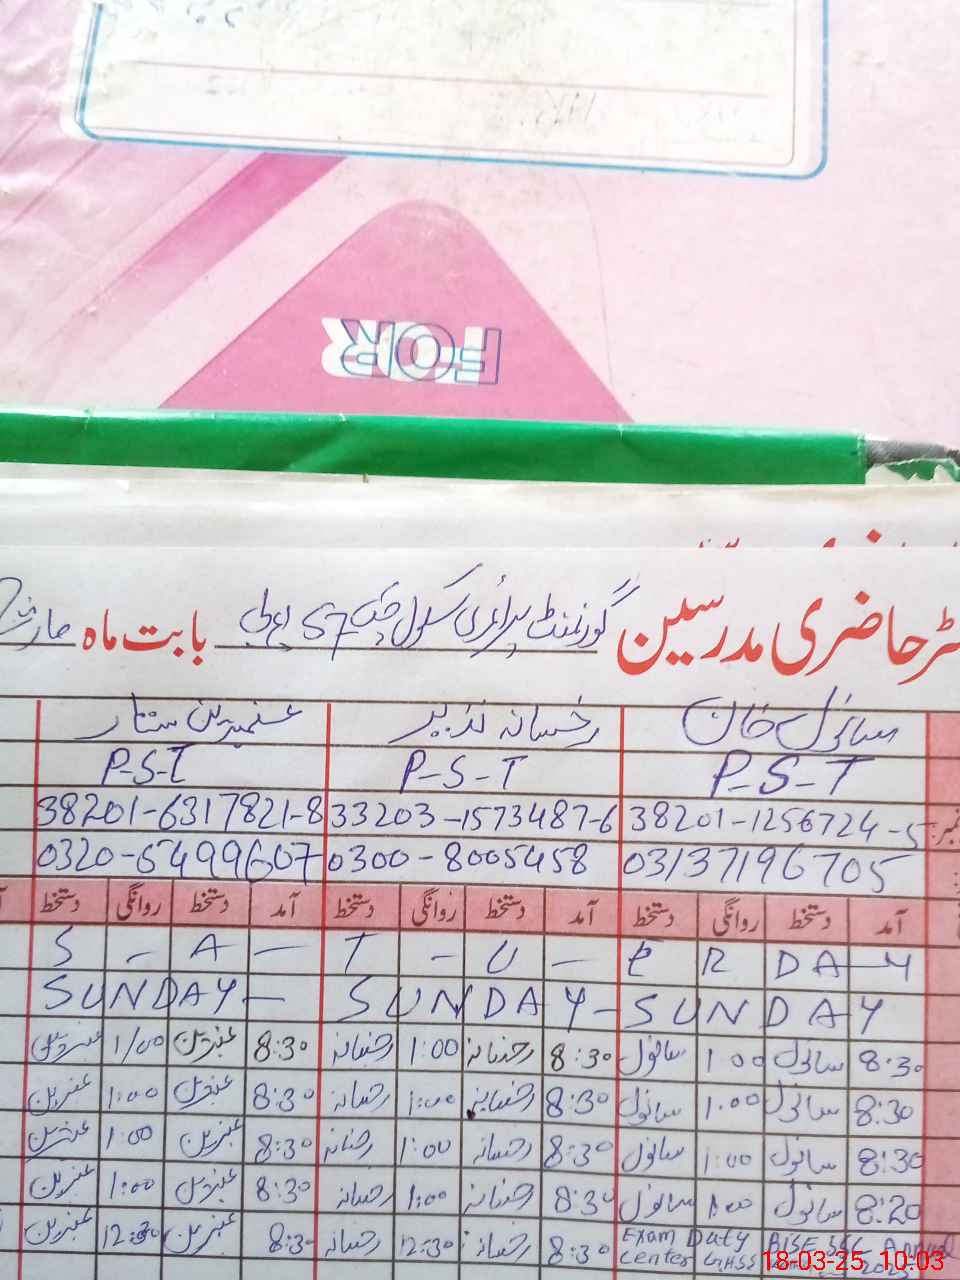 FOR
رجسٹر حاضری مدرسین گورنمنٹ پرائمری سکول چک 57 بابت ماہ مارچ
سانول خان رخسانہ نذیر عنبرین ستار
P-S-T P-S-T P-S-T
38201-1256724-5 33203-1573487-6 38201-6317821-8
03137196705 0300-8005458 0320-6499607
آمد دستخط روانگی دستخط آمد دستخط روانگی دستخط آمد دستخط روانگی دستخط
S - A - T - U - E R D A - Y
SUNDAY - SUNDAY - SUNDAY
8:30 سانول 1:00 سانول 8:30 رخسانہ 1:00 رخسانہ 8:30 عنبرین 1/00 عنبرین
8:30 سانول 1:00 سانول 8:30 رخسانہ 1:00 رخسانہ 8:30 عنبرین 1:00 عنبرین
8:30 سانول 1:00 سانول 8:30 رخسانہ 1:00 رخسانہ 8:30 عنبرین 1:00 عنبرین
8:20 سانول 1:00 سانول 8:30 رخسانہ 1:00 رخسانہ 8:30 عنبرین 1:00 عنبرین
Exam Duty BISE SSC Annual 8:30 رخسانہ 12:30 رخسانہ 8:30 عنبرین 12:30 عنبرین
Center GHSS
18-03-25 10:03